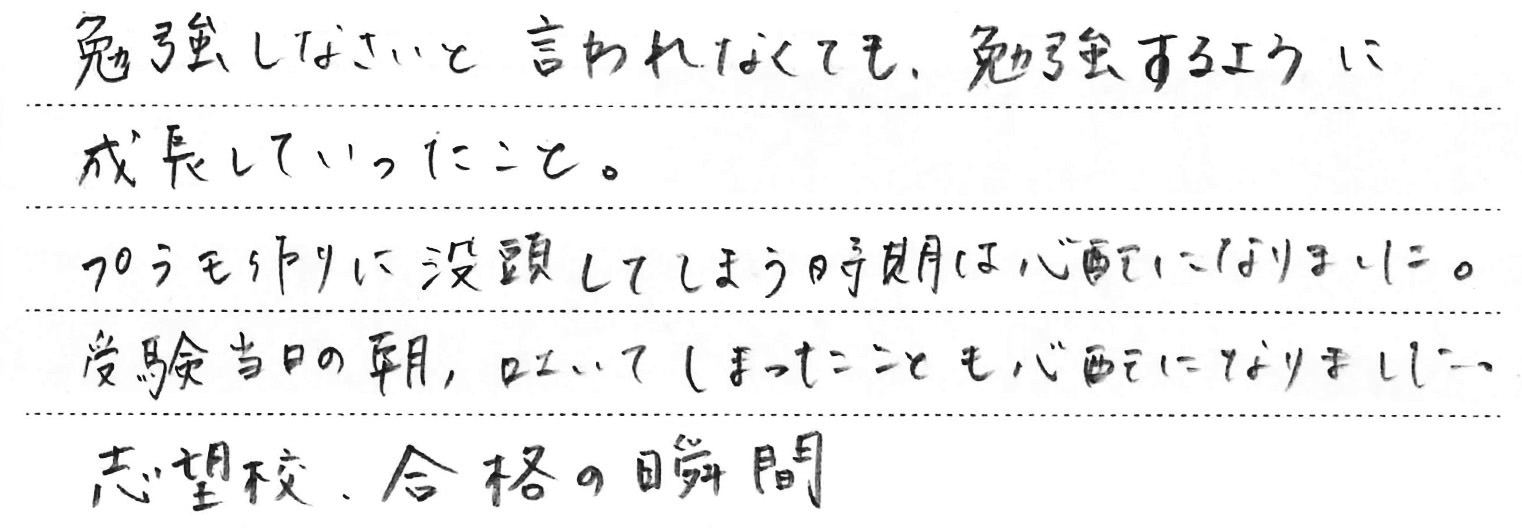 勉強しなさいと言われなくても、勉強するように
成長していったこと。
プラモ作りに没頭してしまう時期は心配になりました。
受験当日の朝、吐いてしまったことも心配になりました。
志望校、合格の瞬間